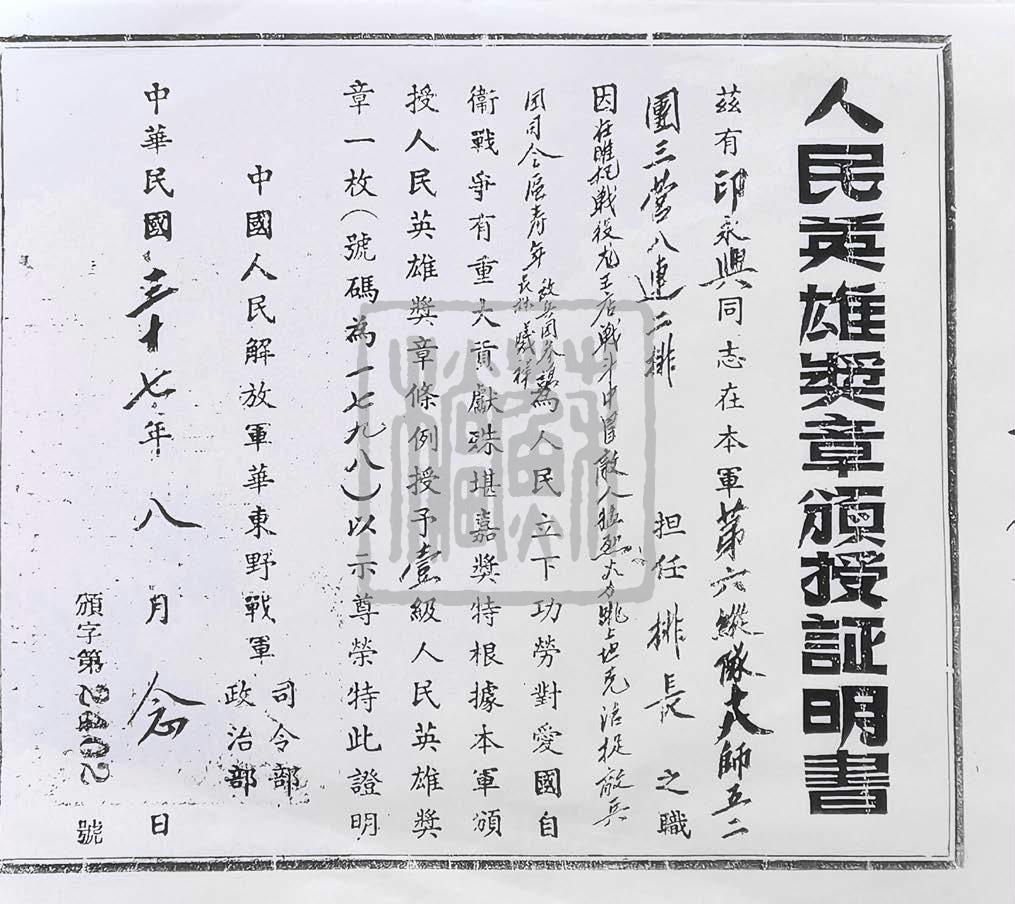 人民英雄獎章頒授証明書
茲有印永興同志在本軍第六縱隊十八師五二
團三營八連二排 担任排長之職
因在睢杞戰役龙王店戰斗中冒敵人猛烈火力跳上坦克活捉敵兵
团司令區寿年
敌兵团参謀
長林曦祥
為人民立下功勞對愛國自
衛戰爭有重大貢獻殊堪嘉獎特根據本軍頒
授人民英雄獎章條例授予壹級人民英雄獎
章一枚(號碼為一七九八)以示尊榮特此證明
中國人民解放軍華東野戰軍
司令部
政治部
中華民國三十七年八月念日
頒字第2402號